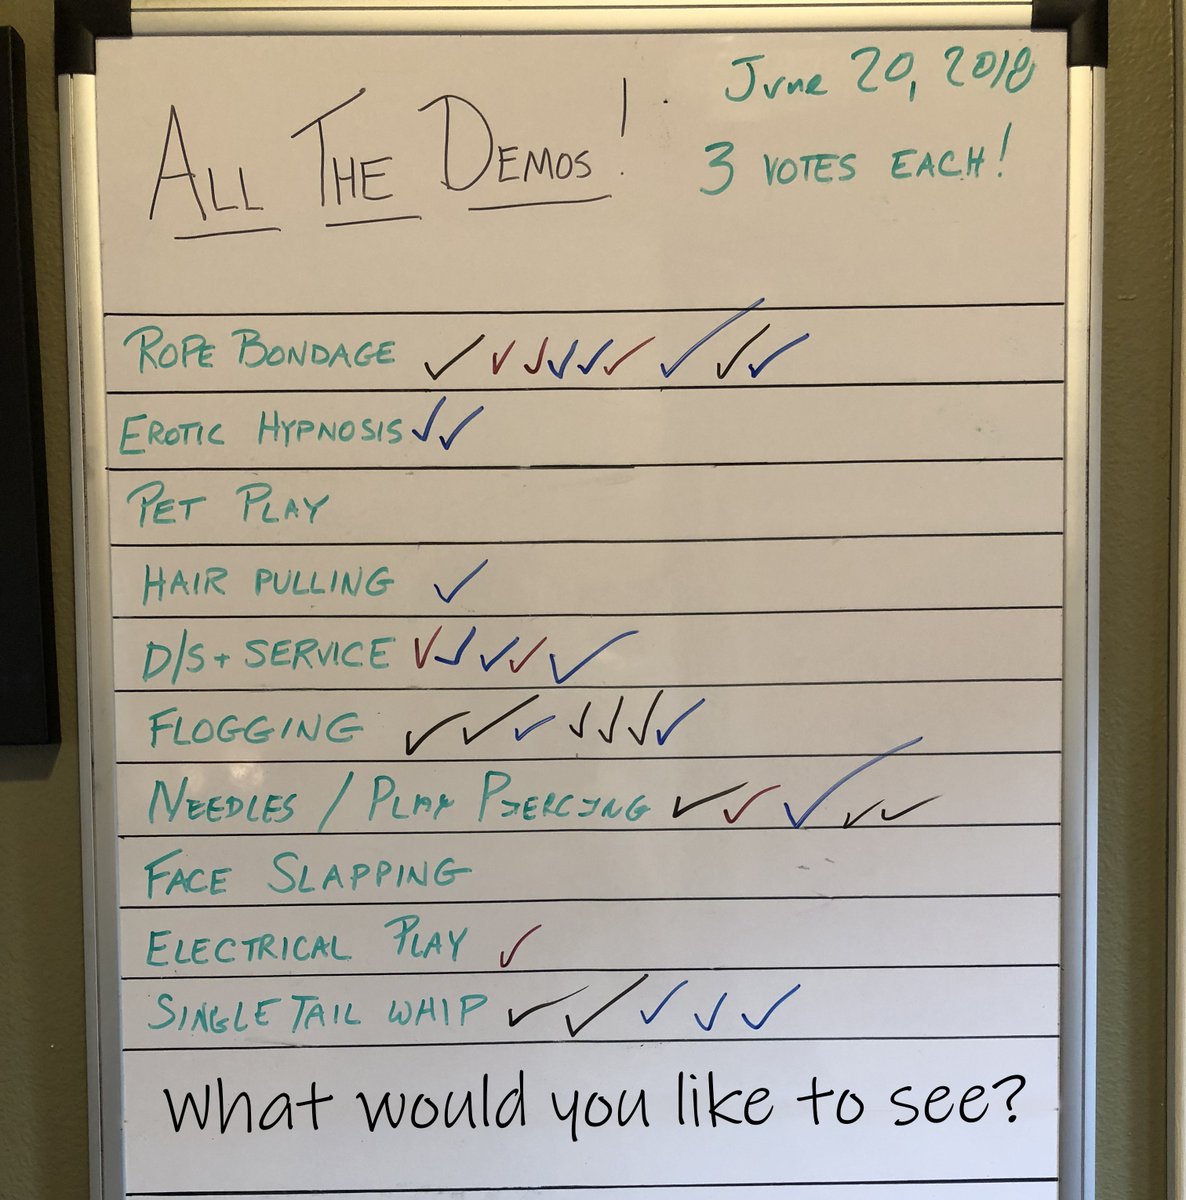 ALL THE DEMOS!
June 20, 2018
3 VOTES EACH!
ROPE BONDAGE ✓ ✓ ✓ ✓ ✓ ✓ ✓ ✓ ✓
EROTIC HYPNOSIS ✓ ✓
PET PLAY
HAIR PULLING ✓
D/S + SERVICE ✓ ✓ ✓ ✓ ✓
FLOGGING ✓ ✓ ✓ ✓ ✓ ✓ ✓
NEEDLES / PLAY PIERCING ✓ ✓ ✓ ✓ ✓
FACE SLAPPING
ELECTRICAL PLAY ✓
SINGLE TAIL WHIP ✓ ✓ ✓ ✓ ✓
What would you like to see?